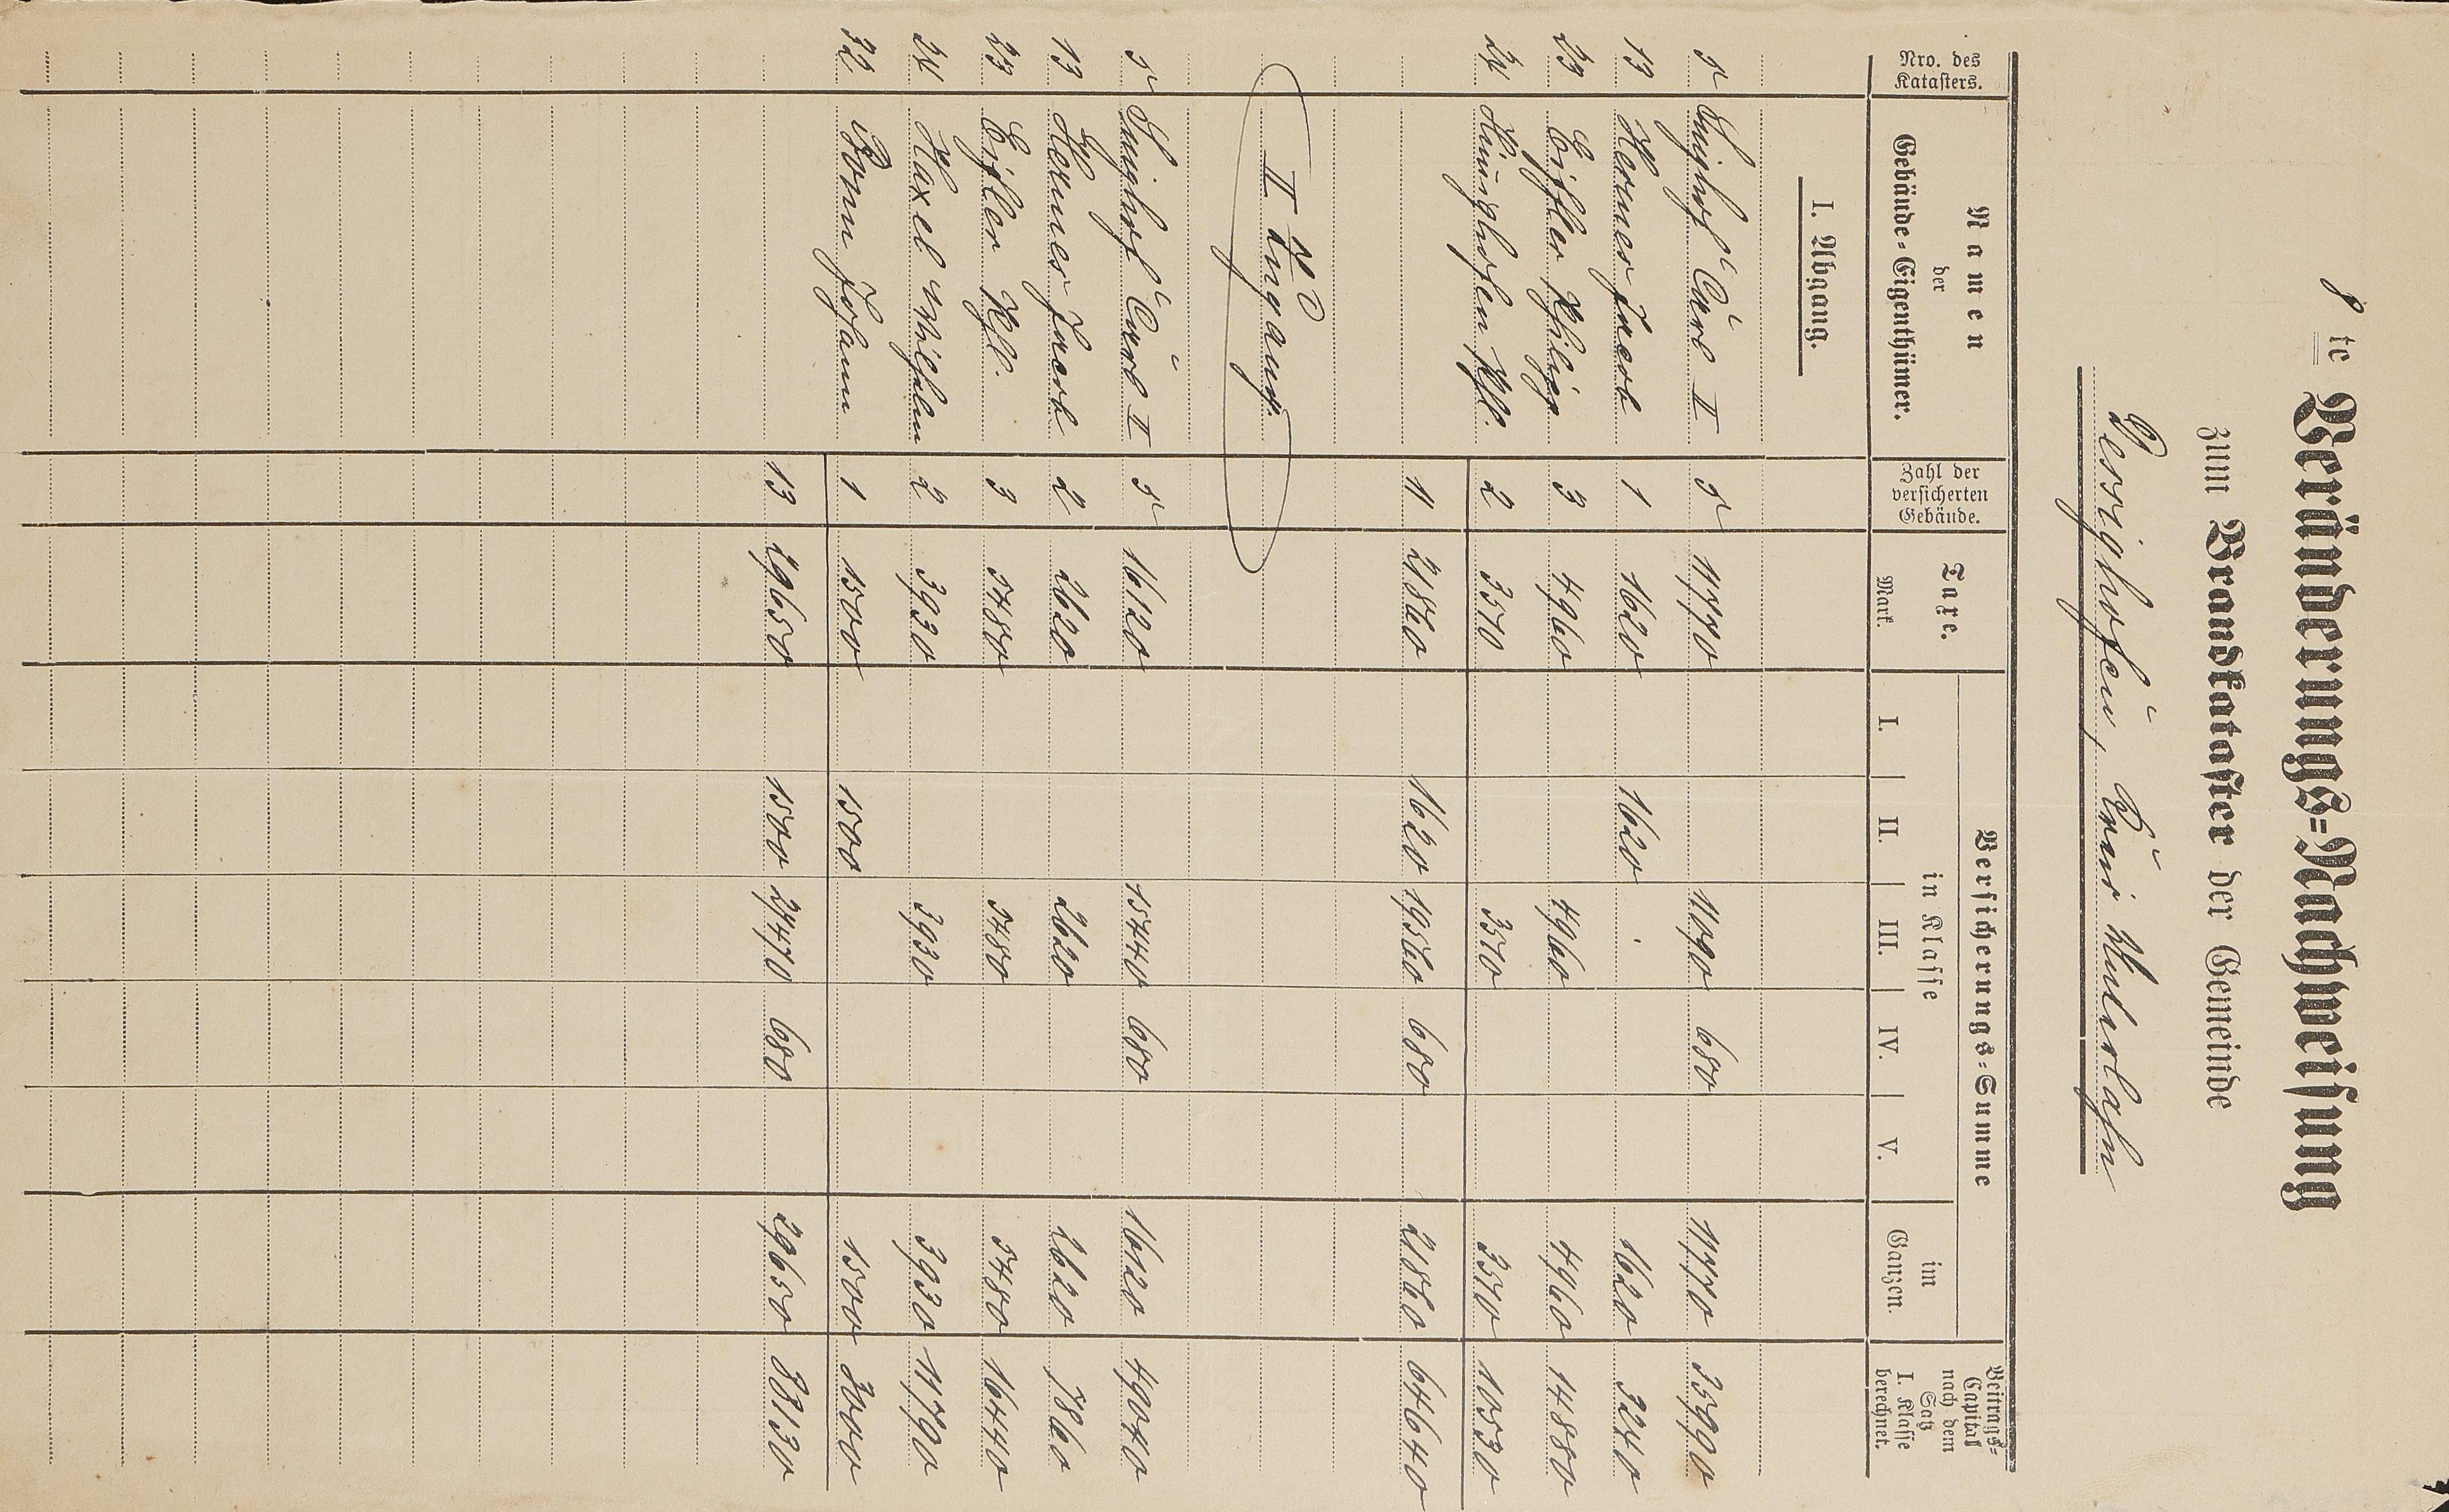 8te Veränderungs=Nachweisung
zum Brandkataster der Gemeinde
Dessighofen, Kreis Unterlahn
Nro. des Katasters.
Namen der Gebäude=Eigenthümer.
Zahl der versicherten Gebäude.
Taxe. Mark.
Versicherungs=Summe
in Klasse
I. II. III. IV. V.
im Ganzen.
Beitrags=Capital nach dem Satz I. Klasse berechnet.
I. Abgang.
5 Singhof Carl I 5 11770 11090 680 11770 35990
13 Hermes Jacob 1 1620 1620 1620 3240
23 Eifler Philipp 3 4960 4960 4960 14880
24 Phil. 2 3510 3510 3510 10530
11 21860 1620 19560 680 21860 64640
II Zugang.
5 Singhof Carl I 5 16120 15440 680 16120 49040
13 Hermes Jacob 2 2620 2620 2620 7860
23 Eifler Phil. 3 5480 5480 5480 16440
24 Haxel Wilhelm 2 3930 3930 3930 11790
32 Bonn Johann 1 1500 1500 1500 3000
13 29650 1500 27470 680 29650 88130